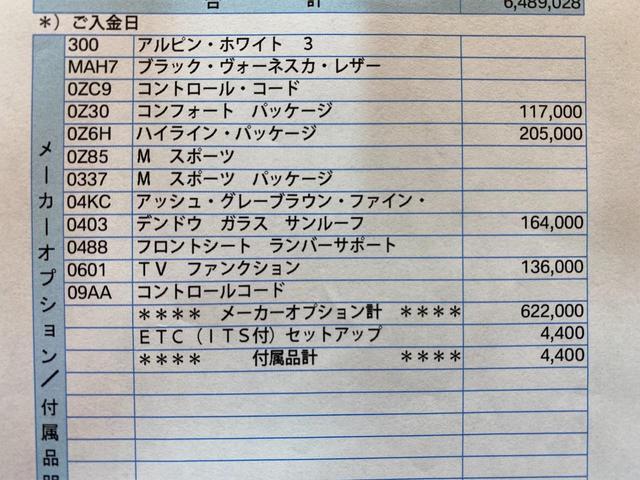 合 計 6,489,028
*) ご入金日
300 アルピン・ホワイト 3
MAH7 ブラック・ヴォーネスカ・レザー
0ZC9 コントロール・コード
0Z30 コンフォート パッケージ 117,000
0Z6H ハイライン・パッケージ 205,000
0Z85 M スポーツ
0337 M スポーツ パッケージ
04KC アッシュ・グレーブラウン・ファイン・
0403 デンドウ ガラス サンルーフ 164,000
0488 フロントシート ランバーサポート
0601 TV ファンクション 136,000
09AA コントロールコード
**** メーカーオプション計 **** 622,000
ETC(ITS付)セットアップ 4,400
**** 付属品計 **** 4,400
メーカーオプション/付属品